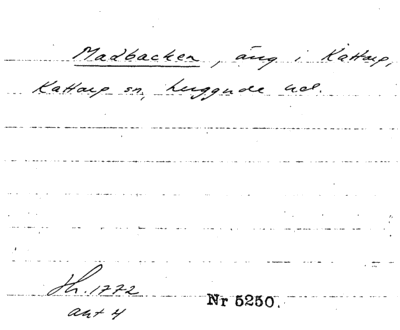 Madbacken, äng i Kattarp,
Kattarp sn, Luggude hd.
Hr. 1772
akt 4
Nr 5250.